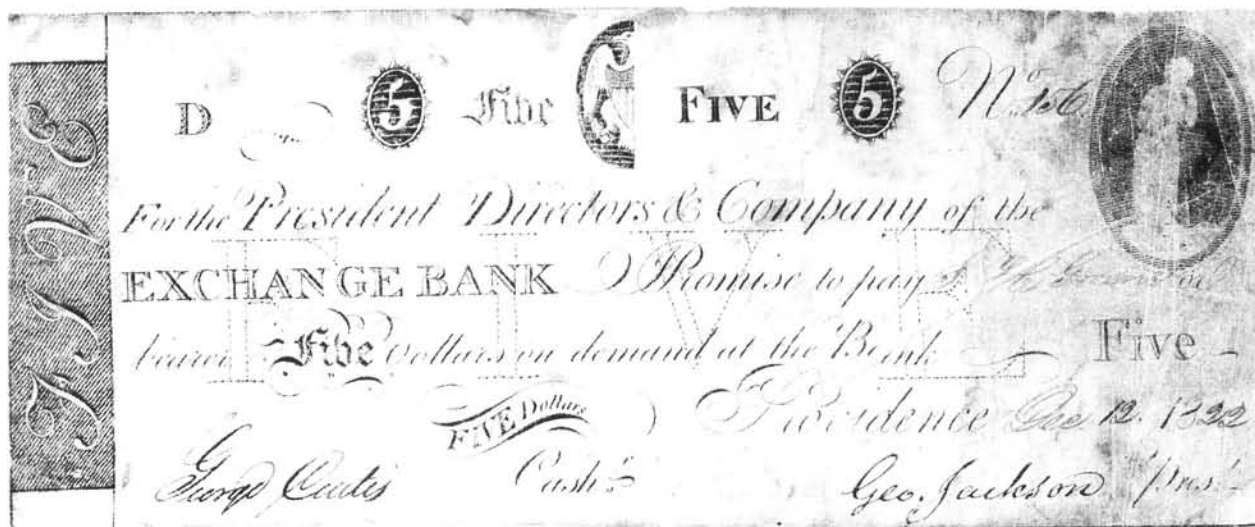 FIVE
D 5 Five FIVE 5 No. 156
For the President Directors & Company of the
EXCHANGE BANK Promise to pay
bearer Five Dollars on demand at the Bank Five
FIVE
FIVE Dollars Providence Dec 12. 1822
George Curtis Cash.r Geo. Jackson Pres.t